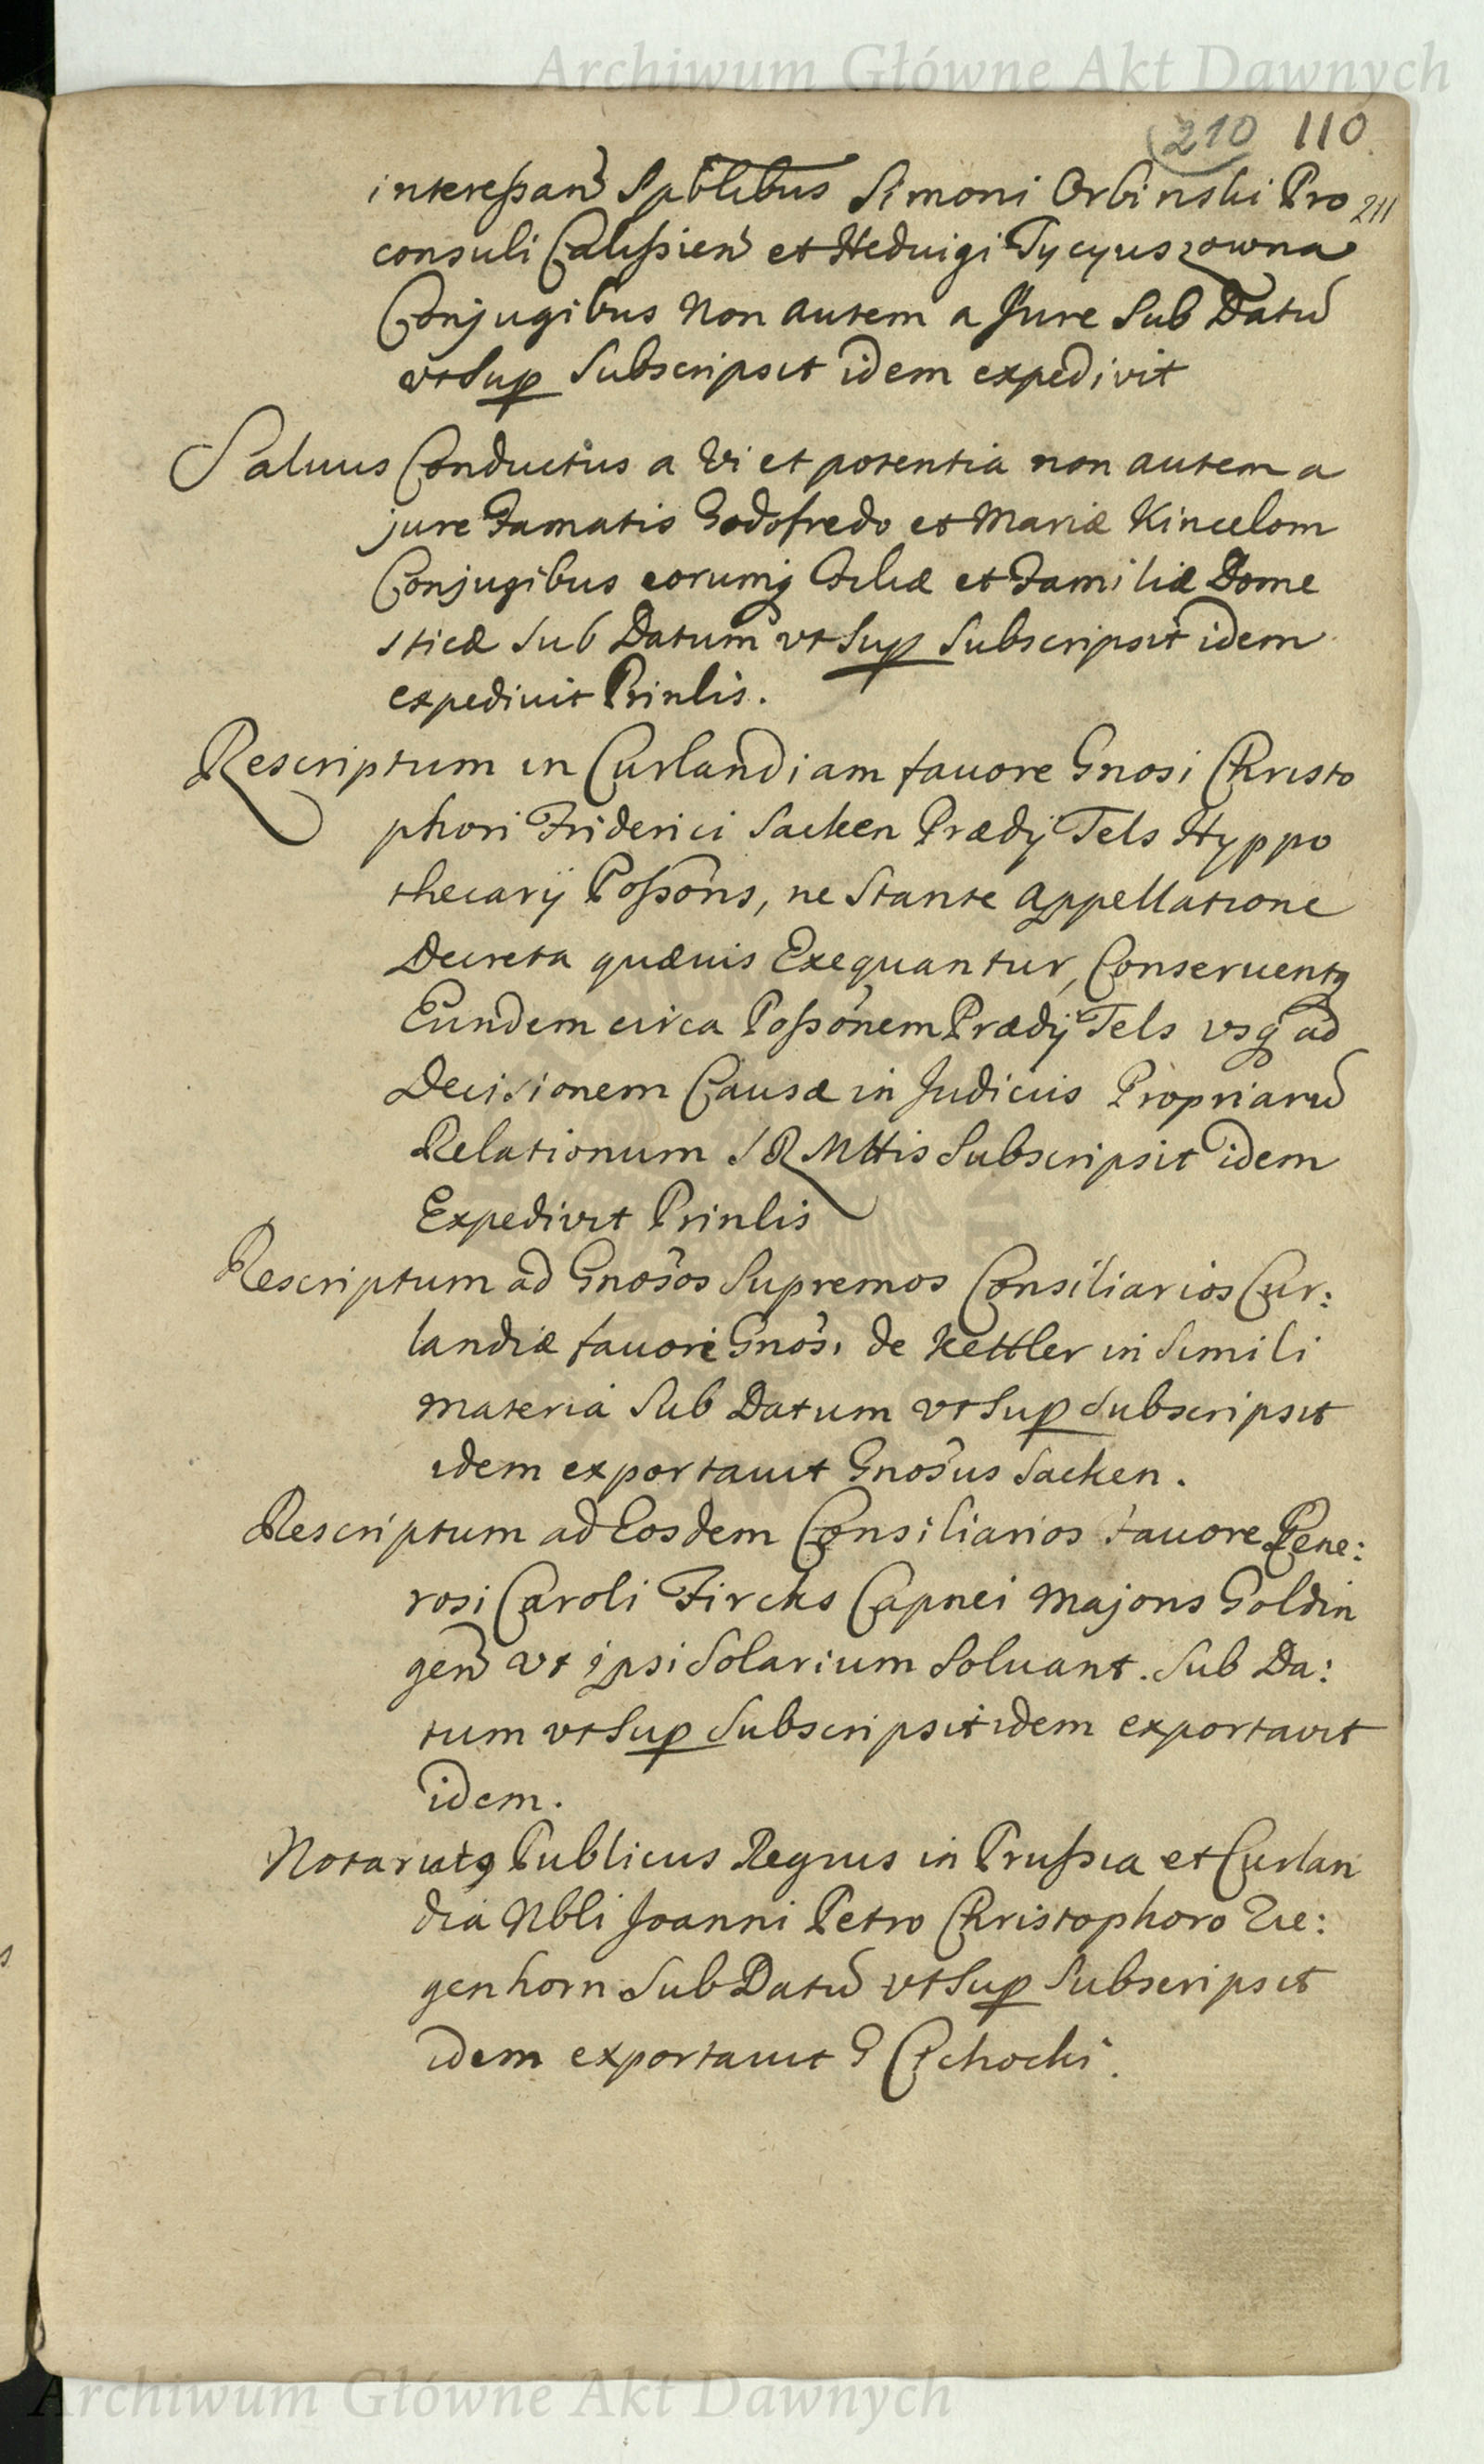 Archiwum Główne Akt Dawnych
210 110.
interessan Spblibus Simoni Orbinski Pro 211
consuli Calissien et Hedvigi Tycyuszowna
Conjugibus Non autem a Jure Sub Datu
vt Sup Subscripsit idem expedivit
Saluus Conductus a Vi et potentia non autem a
jure Famatis Godofredo et Mariæ Kincelom
Conjugibus eorumq Filiæ et Familiæ Dome
sticæ Sub Datum vt Sup Subscripsit idem
expediuit Prinlis.
Rescriptum in Curlandiam fauore Gnosi Christo
phori Friderici Sacken Prædij Tels Hyppo
thecarij Possons, ne Stante Appellatione
Decreta quæuis Exequantur, Conseruentq
Eundem circa Possonem Prædij Tels vsq ad
Decisionem Causæ in Judiciis Propriaru
Relationum S R Mttis Subscripsit idem
Expedivit Prinlis
Rescriptum ad Gnosos Supremos Consiliarios Cur:
landiæ fauore Gnosi de Kettler in Simili
materia Sub Datum vt Sup Subscripsit
idem exportauit Gnosus Sacken.
Rescriptum ad Eosdem Consiliarios fauore Gene:
rosi Caroli Fircks Capnei Majoris Goldin
gen vt ipsi Solarium Soluant. Sub Da:
tum vt Sup Subscripsit idem exportavit
idem.
Notariatq Publicus Regius in Prussia et Curlan
dia Nbli Joanni Petro Christophoro Zie:
genhorn Sub Datu vt Sup Subscripsit
idem exportauit G Cichocki.
Archiwum Główne Akt Dawnych